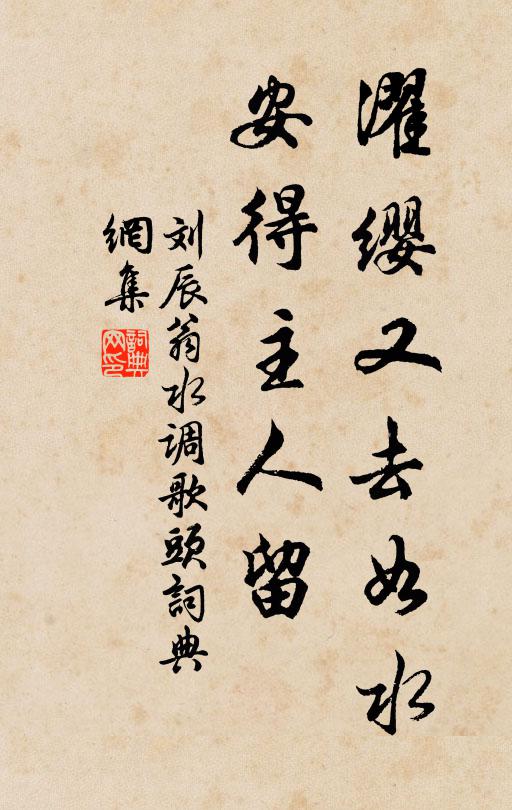 濯缨又去如水
安得主人留
刘辰翁水调歌頭詞典
網集
詞典
网印